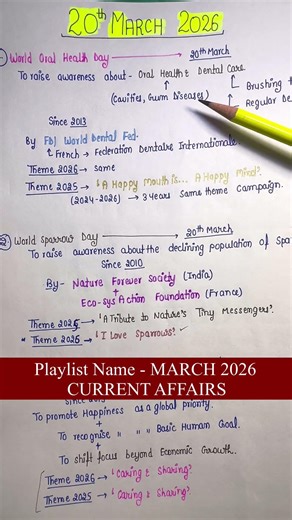 20th MARCH 2026
World Oral Health Day → 20th March
To raise awareness about - Oral Health & Dental Care
(Cavities, Gum Diseases)
Brushing
Regular De
Since 2013
By FDI World Dental Fed.
French → Federation Dentaire Internationale.
Theme 2026 → same
Theme 2025 → 'A Happy Mouth is... A Happy Mind'.
(2024-2026) → 3 years Same theme campaign.
2) World Sparrow Day → 20th March
To raise awareness about the declining population of Spa
Since 2010
By- Nature Forever Society (India)
+
Eco-Sys Action Foundation (France)
Theme 2025 → 'A Tribute to Nature's Tiny Messengers'.
" Theme 2026 → 'I Love Sparrows'. ✓
Playlist Name - MARCH 2026
CURRENT AFFAIRS
To promote Happiness as a global priority.
+
To recognise " " Basic Human Goal.
+
To shift focus beyond Economic Growth.
Theme 2026 → 'Caring & Sharing'.
Theme 2025 → 'Caring & Sharing'.